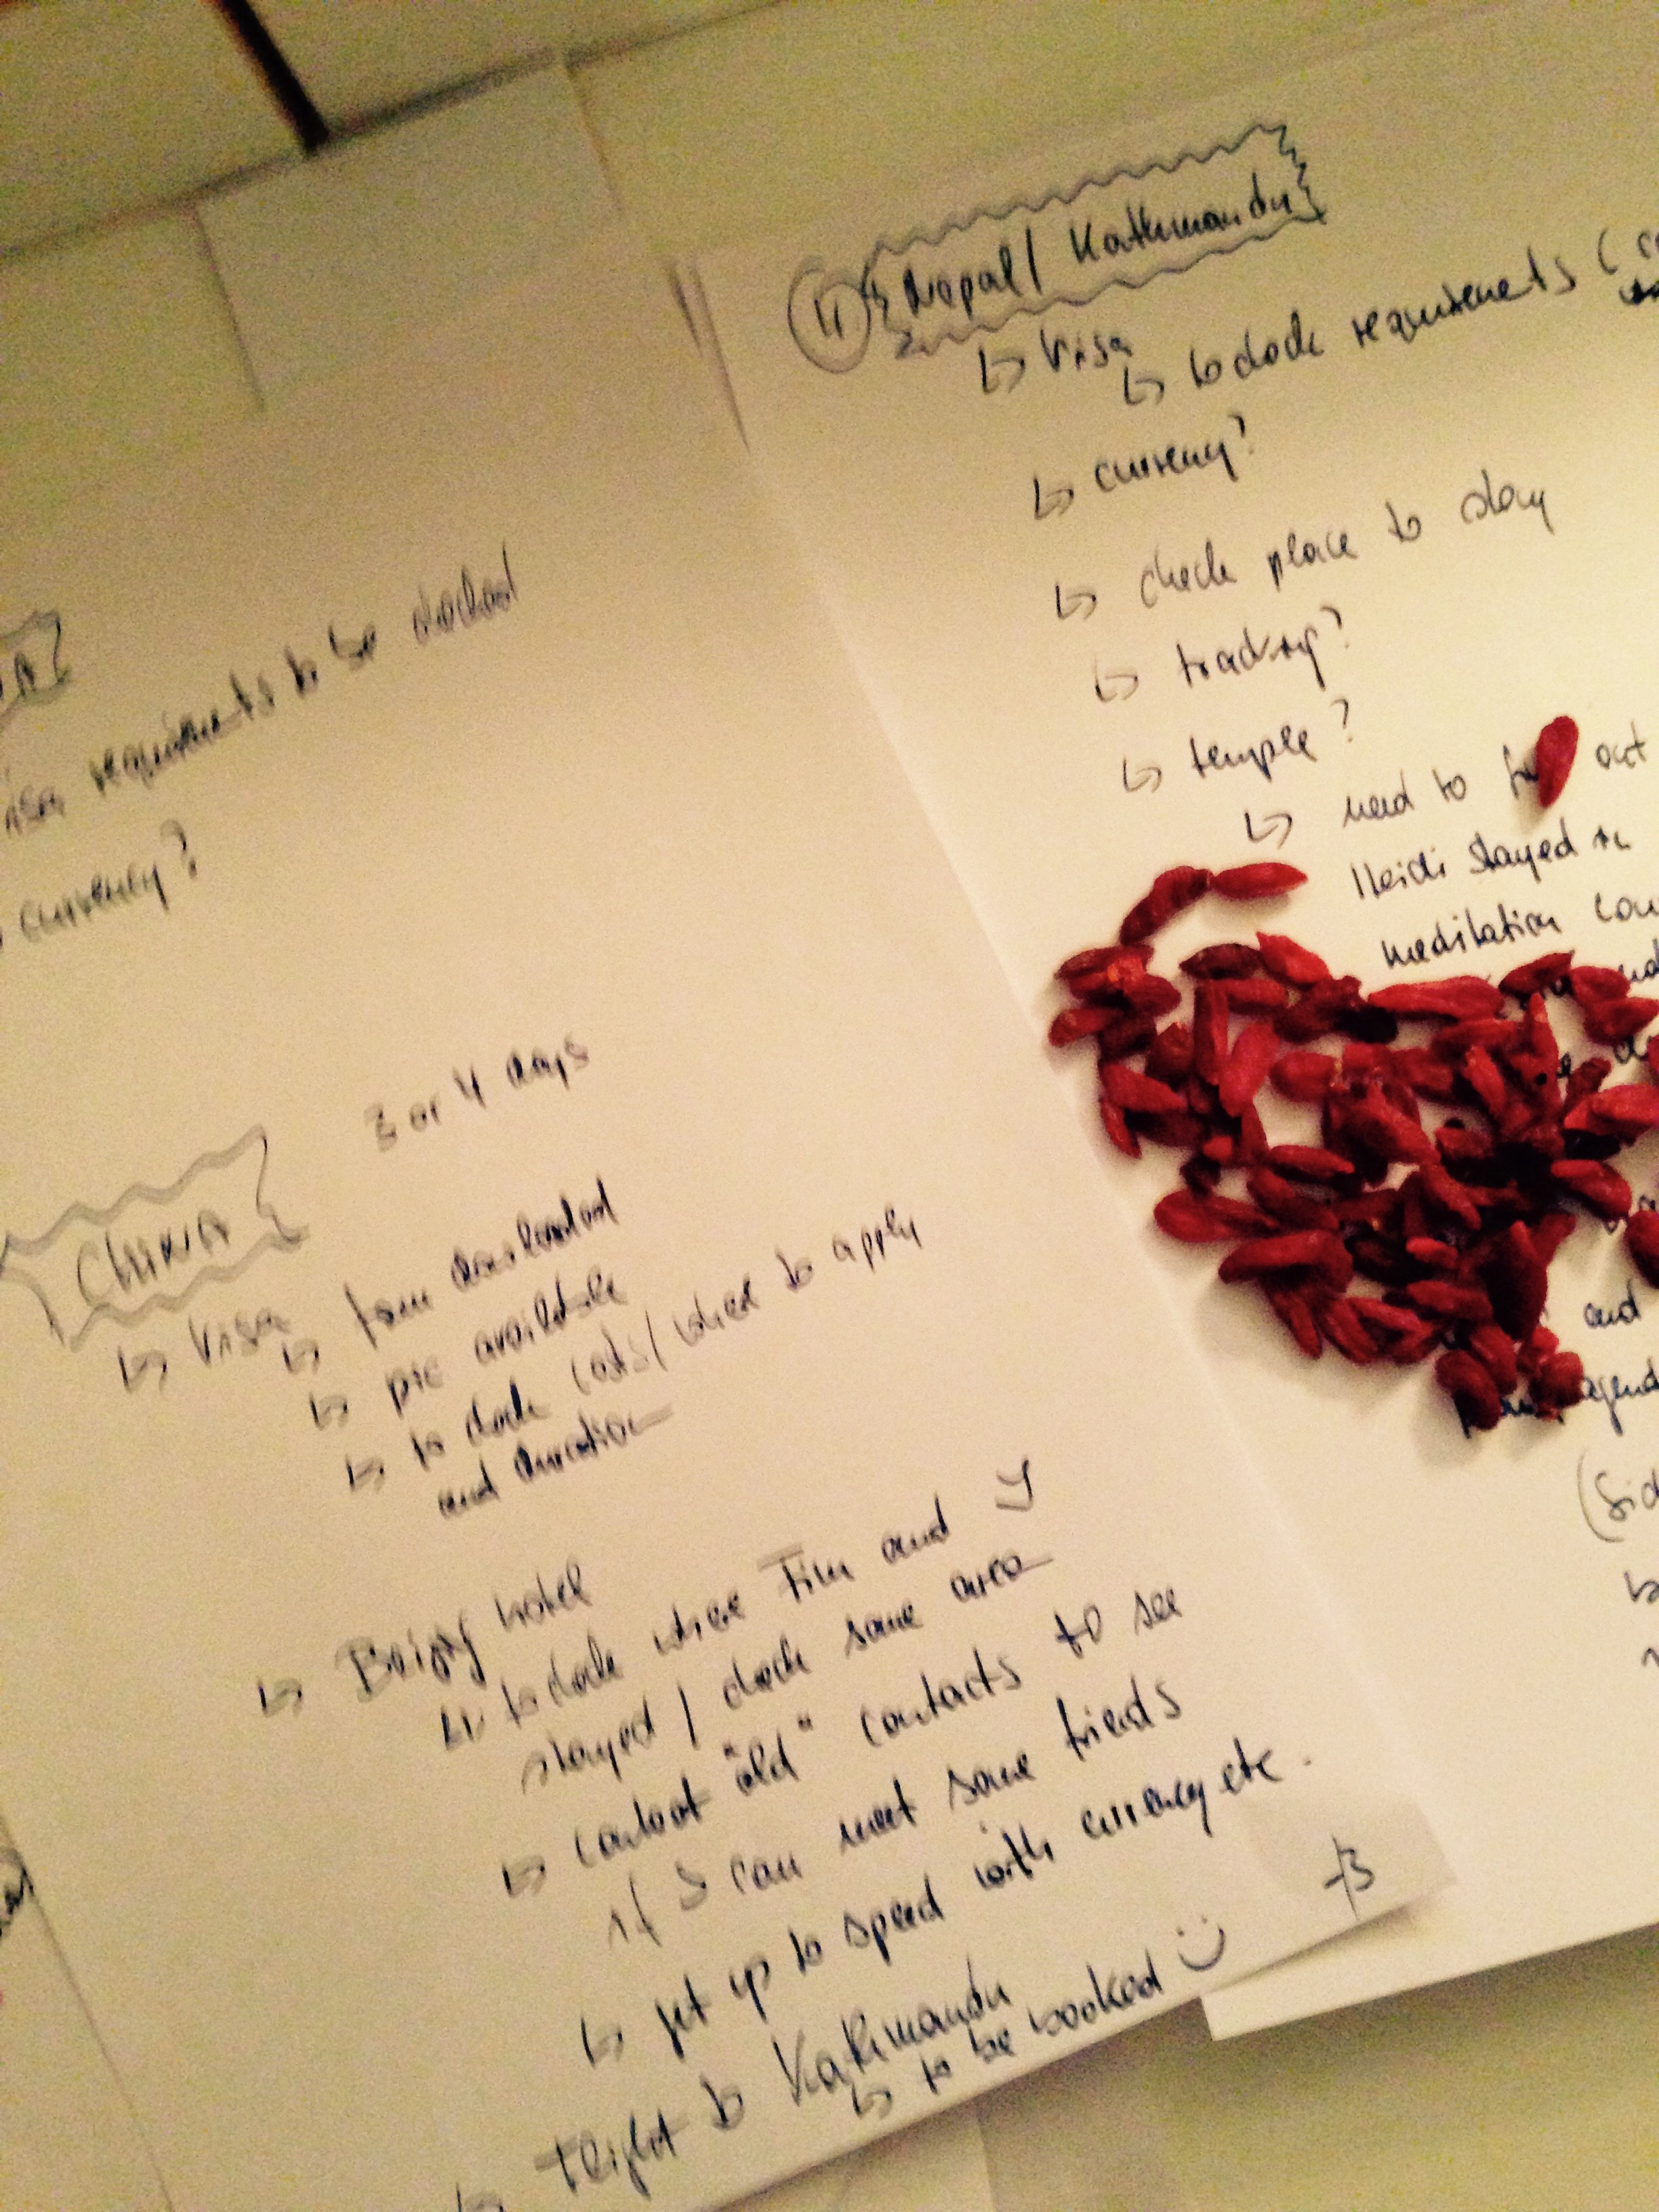 requirements to be checked
currency?
3 or 4 days
CHINA
↳ Visa
↳ form downloaded
↳ pic available
↳ to check costs / where to apply
and duration
↳ Beijing hotel
↳ to check where Tim and I
stayed / check same area
↳ contact "old" contacts to see
if I can meet some friends
↳ get up to speed with currency etc.
↳ Flight to Kathmandu
↳ to be booked
Nepal / Kathmandu
↳ Visa
↳ to check requirements (
↳ currency?
↳ check place to stay
↳ tracking?
↳ temple?
↳ need to out
Heidi stayed in
meditation
and